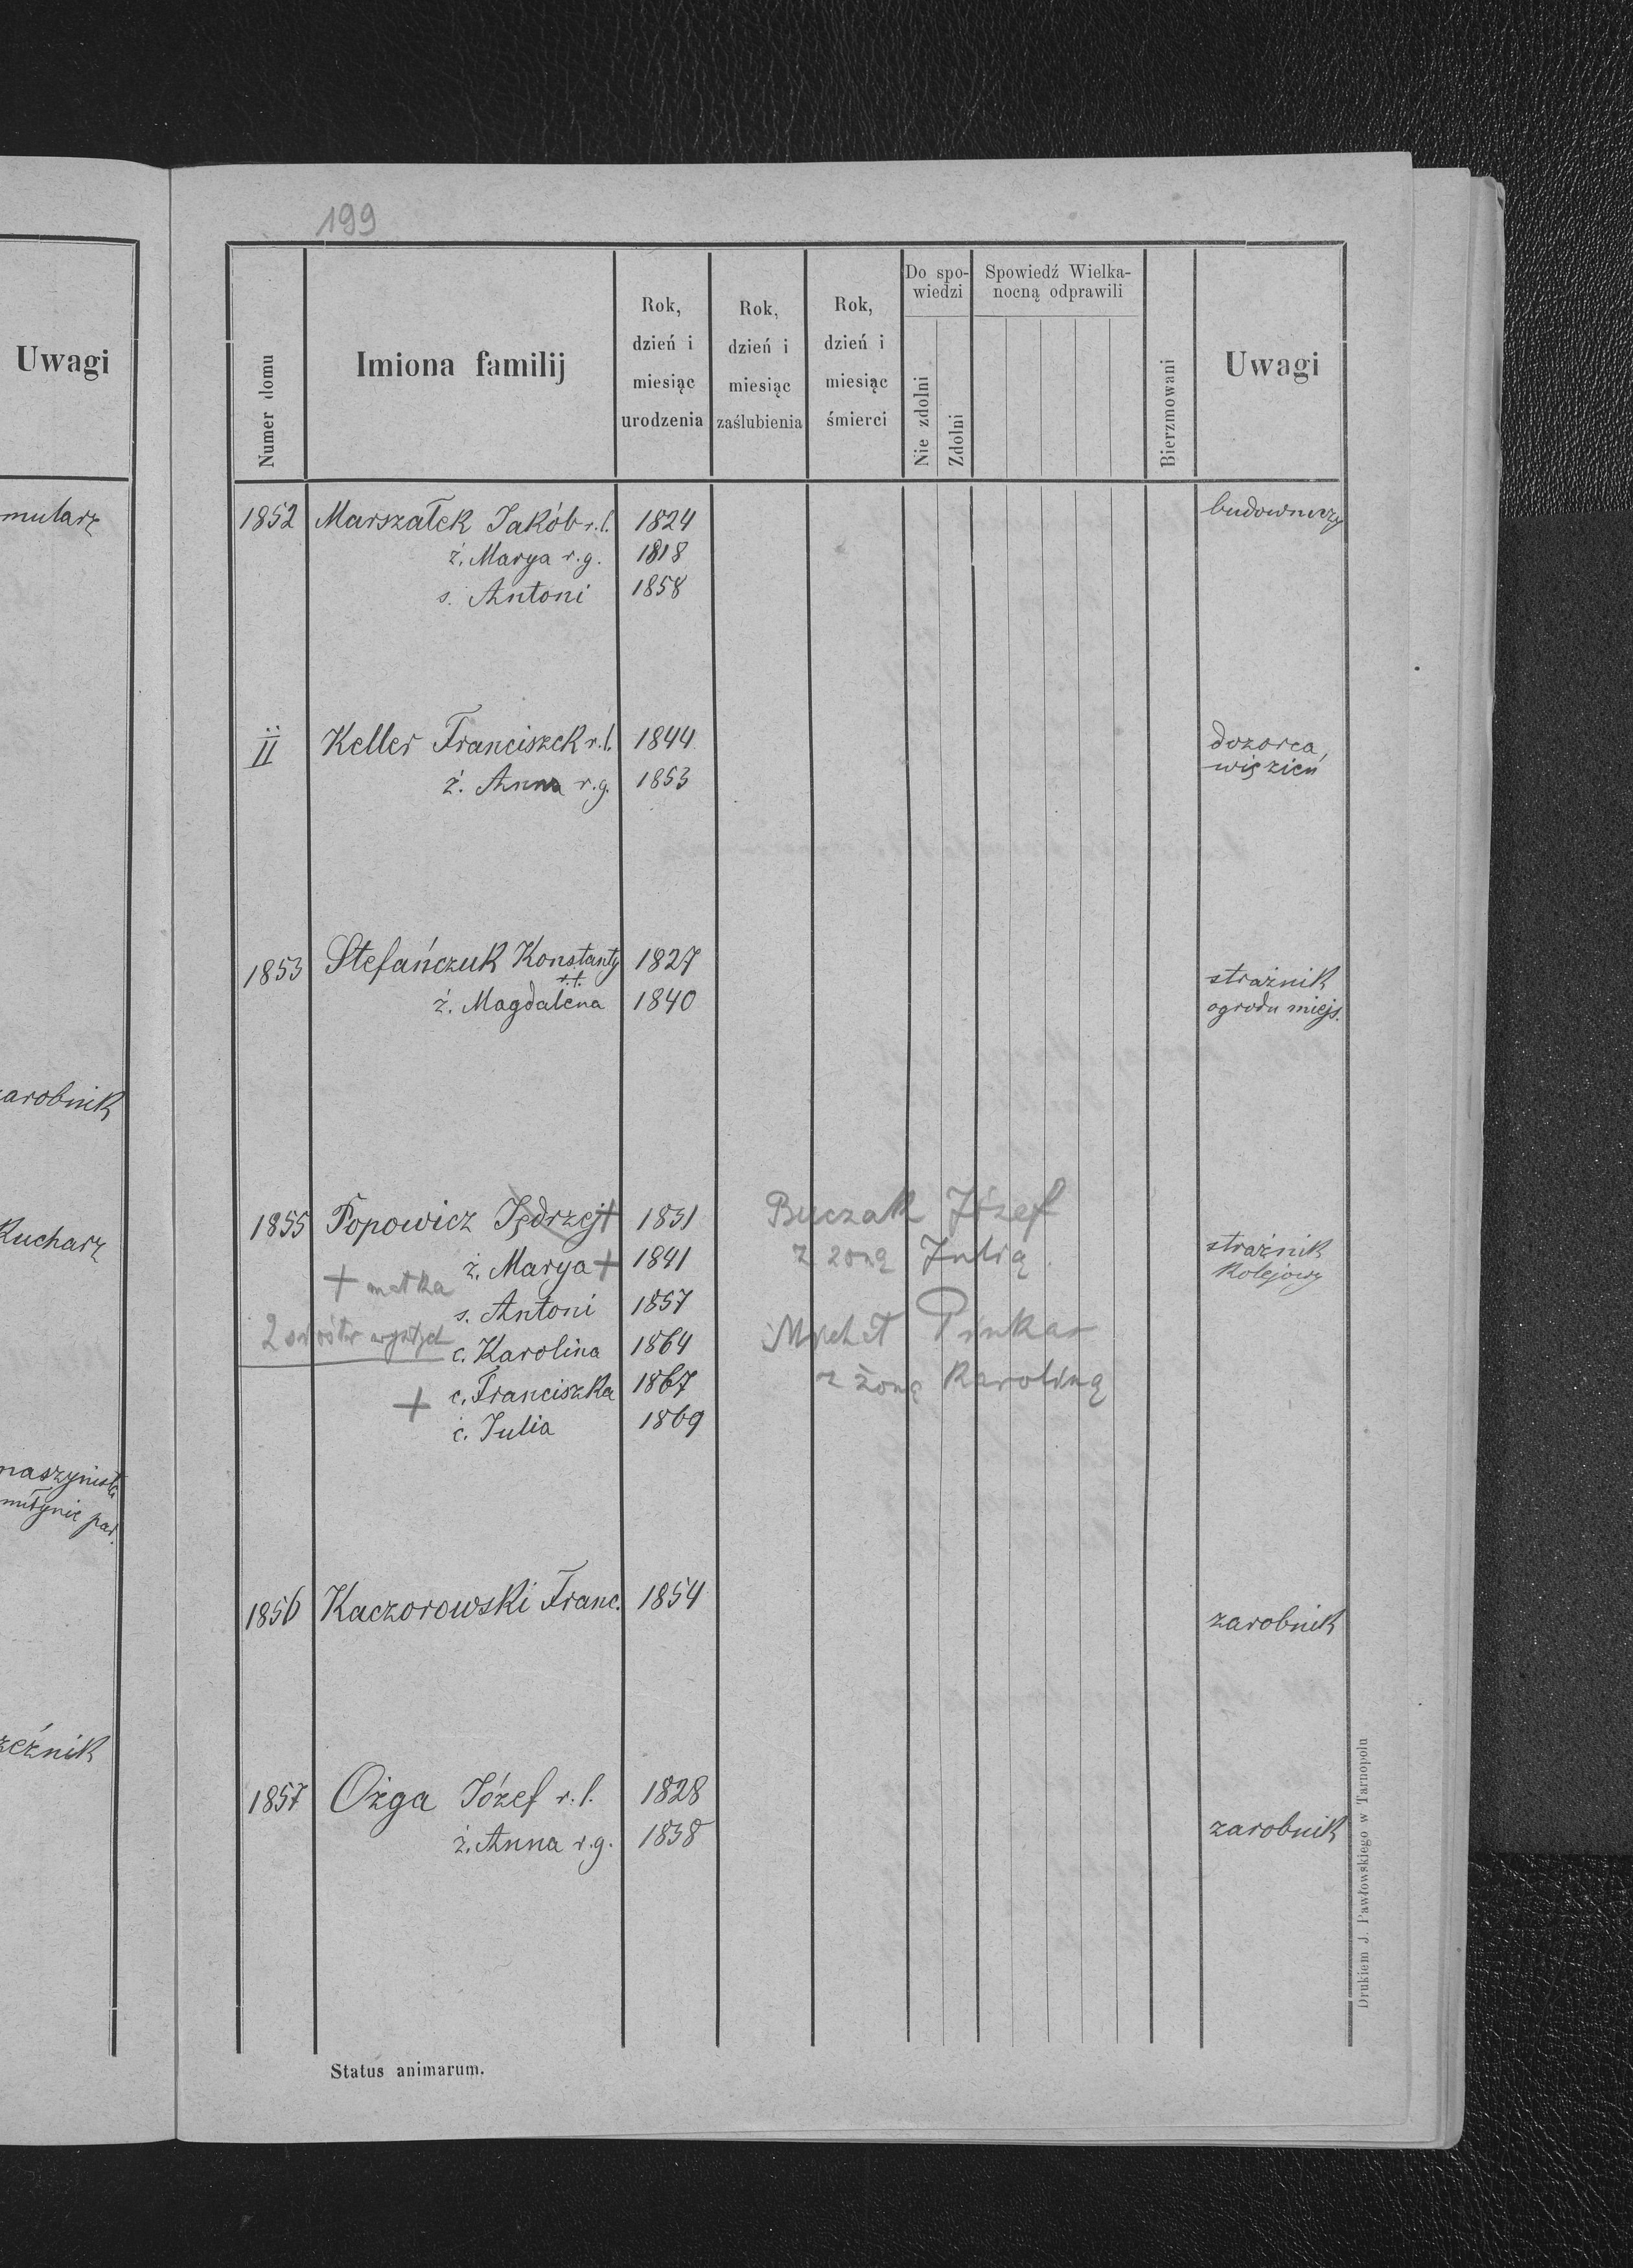 199
Uwagi
mularz
arobnik
Kucharz
Numer domu
Imiona familij
Rok, dzień i miesiąc urodzenia
Rok, dzień i miesiąc zaślubienia
Rok, dzień i miesiąc śmierci
Do spowiedzi
Nie zdolni
Zdolni
Spowiedź Wielkanocną odprawili
Bierzmowani
Uwagi
1852 Marszałek Jakób r.l. 1824 budowniczy
ż. Marya r.g. 1818
s. Antoni 1858
II Keller Franciszek r.l. 1844 dozorca
więzień
ż. Anna r.g. 1853
1853 Stefańczuk Konstanty 1827 strażnik
r.l.
ż. Magdalena 1840 ogrodu miejs.
1855 Popowicz Jędrzej + 1831 Buczak Józef
ż. Marya + 1841 z żoną Julią strażnik
Kolejowy
+ matka
s. Antoni 1857
2 c. Karolina 1864 Michał Pinkas
+ c. Franciszka 1867 z żoną Karoliną
c. Julia 1869
1856 Kaczorowski Franc. 1854 zarobnik
1857 Ożga Józef r.l. 1828
ż. Anna r.g. 1838 zarobnik
Status animarum.
Drukiem J. Pawłowskiego w Tarnopolu